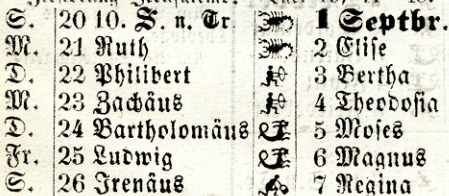 S. 20 10. S. n. Tr 1 Septbr.
M. 21 Ruth 2 Elise
D. 22 Philibert 3 Bertha
M. 23 Zachäus 4 Theodosia
D. 24 Bartholomäus 5 Moses
Fr. 25 Ludwig 6 Magnus
S. 26 Irenäus 7 Regina